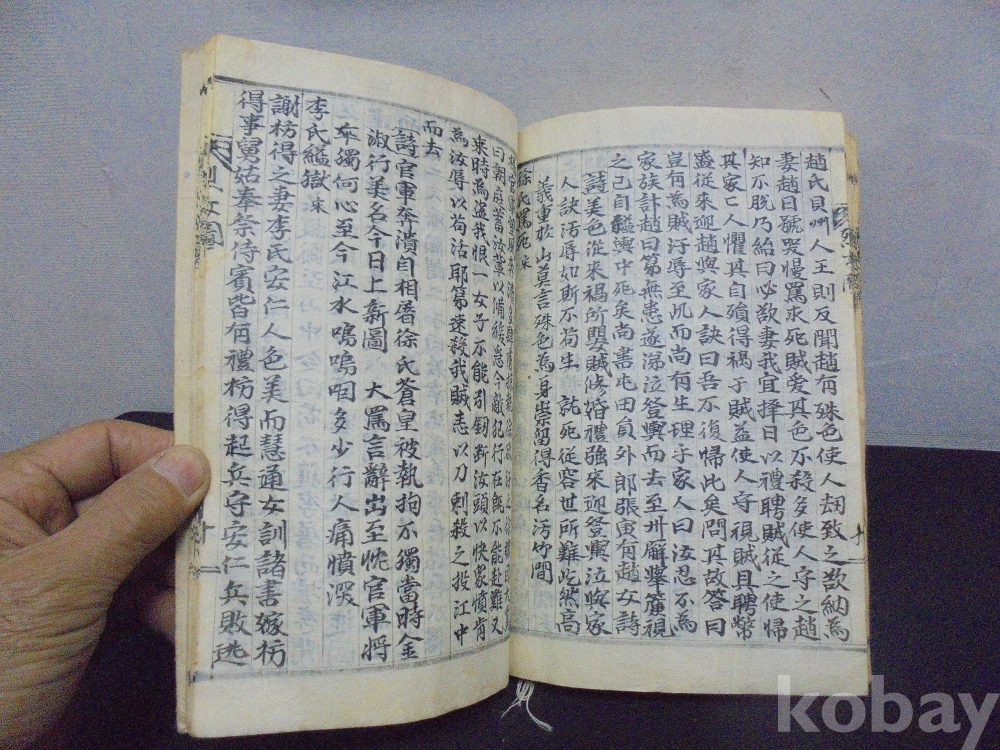 趙氏貝州人王則反聞趙有殊色使人刼致之欲納爲
妻趙曰號哭慢罵求死賊爱其色不殺多使人守之趙
知不脫乃紿曰必欲妻我宜擇日以禮聘賊從之使歸
其家亡人懼其自殞得禍于賊益使人守視賊且聘幣
盛從來迎趙與家人訣曰吾不復歸此矣問其故答曰
豈有爲賊汚辱至此而尚有生理乎家人曰汝忍不爲
家族計趙曰第無患遂涕泣登輿而去至州廨擧簾視
之已自縊輿中死矣尚書屯田員外郎張寅有趙女詩
詩美色從來禍所嬰賊修婚禮強來迎登輿泣悔家
人訣汚辱如斯不苟生 就死從容世所難屹然高
義重於山莫言殊色爲身祟留得香名汚竹間
徐氏罵死宋
曰朝庭蓄汝軰以備緩急今敵犯行在旣不能赴難又
乘時爲盗我恨一女子不能引劒斷汝頭以快衆憤肯
爲汝辱以苟活耶第速殺我賊恚以刀刺殺之投江中
而去
詩官軍奔潰自相屠徐氏蒼皇被執拘不獨當時金
淑行美名今日上新圖 大罵言辭出至忱官軍將
卒獨何心至今江水鳴鳴咽多少行人痛憤深
李氏縊獄宋
謝枋得之妻李氏安仁人色美而慧通女訓諸書嫁枋
得事舅姑奉祭侍賓皆有禮枋得起兵守安仁兵敗逃
kobay